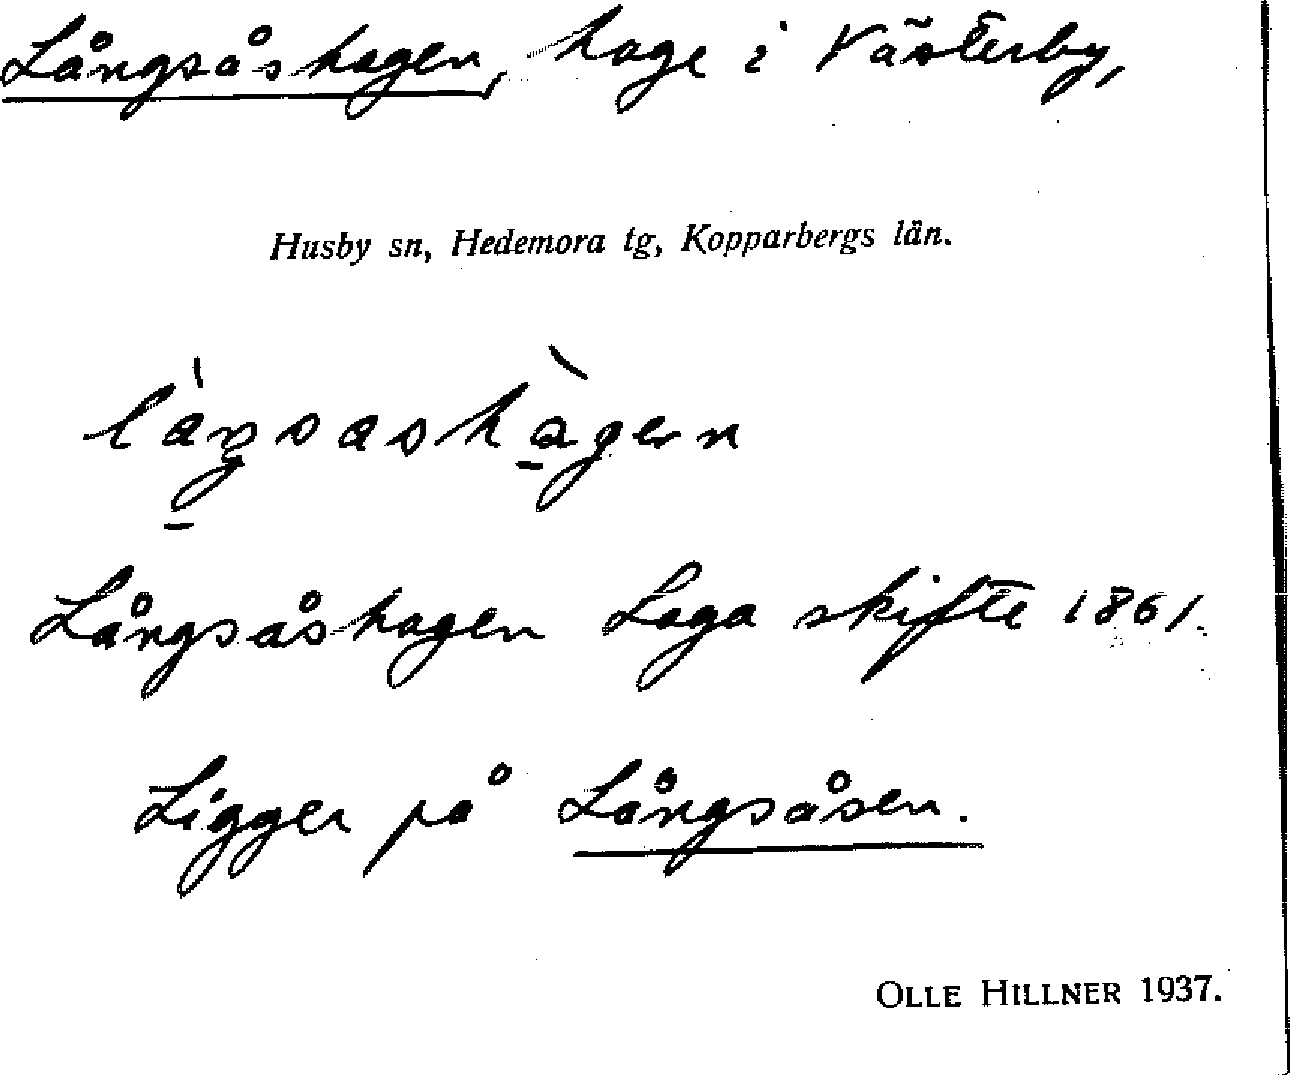 Långsåshagen, hage i Västerby,
Husby sn, Hedemora tg, Kopparbergs län.
Långsåshagen Laga skifte 1861.
Ligger på Långsåsen.
OLLE HILLNER 1937.